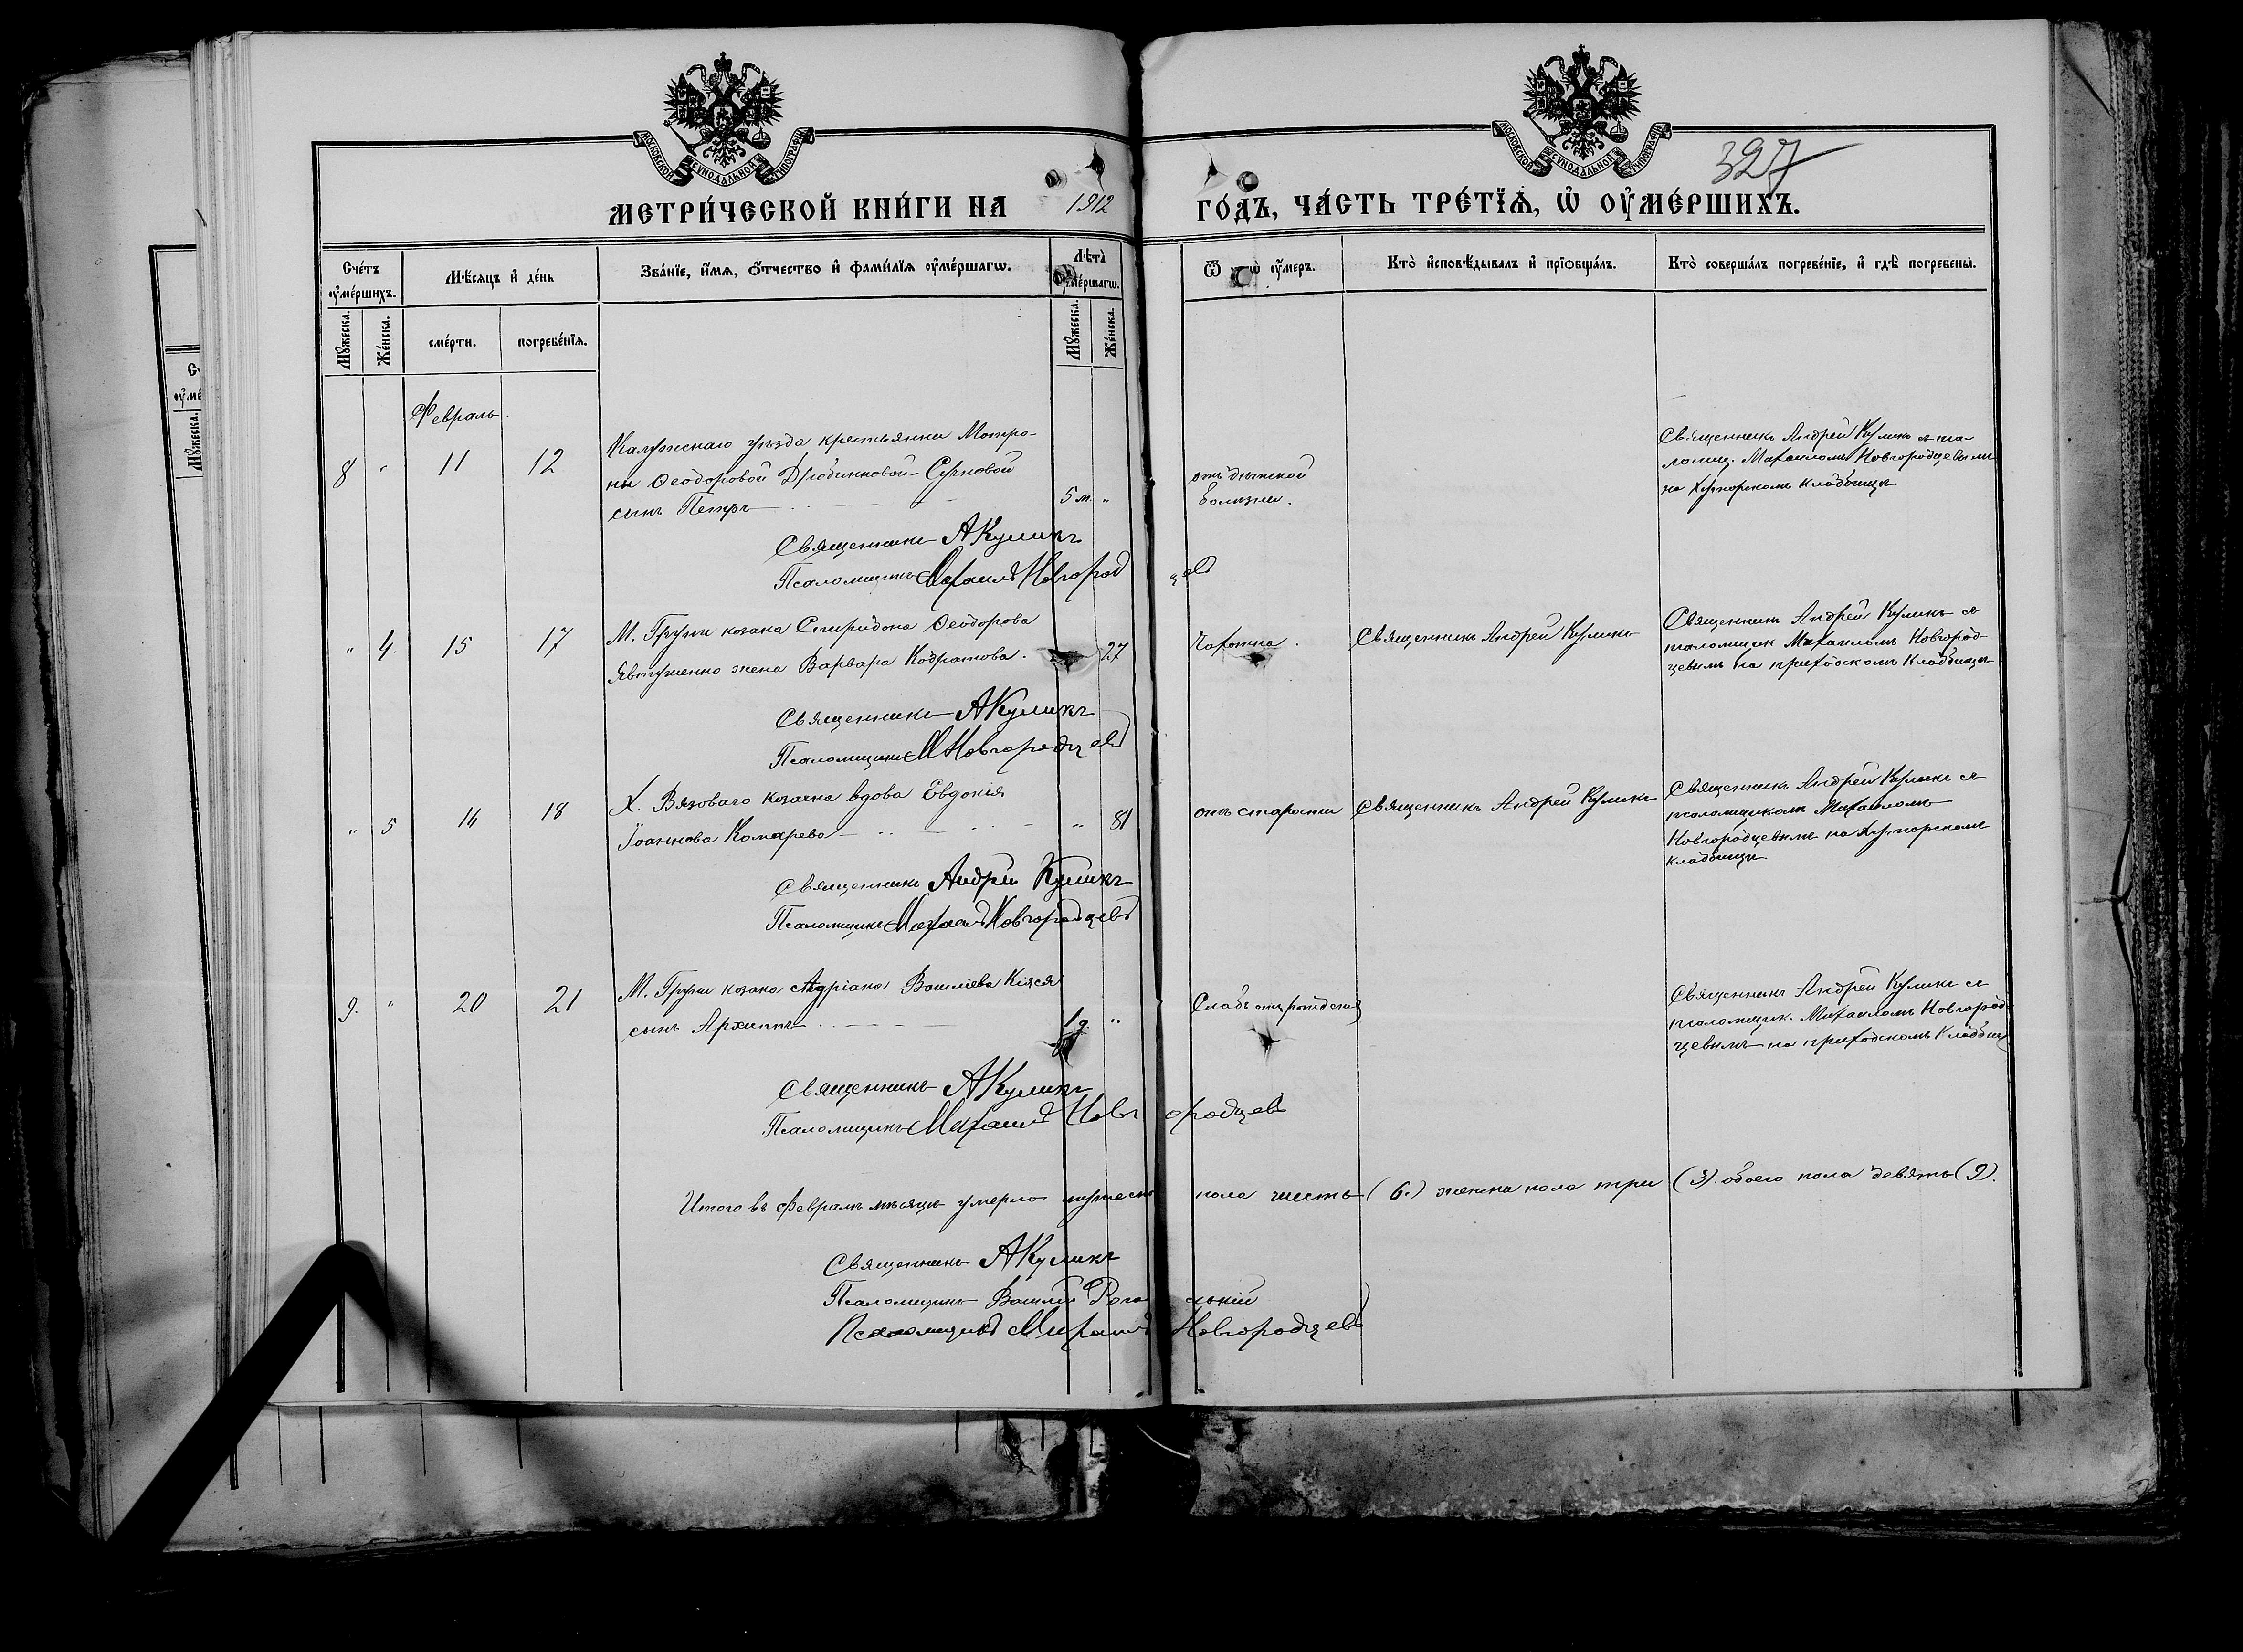 МОСКОВСКОЙ СѴНОДАЛЬНОЙ ТИПОГРАФІИ
МОСКОВСКОЙ СѴНОДАЛЬНОЙ ТИПОГРАФІИ
327
МЕТРИ́ЧЕСКОЙ КНИ́ГИ НА 1912 ГО́ДЪ, ЧА́СТЬ ТРЕ́ТЇѦ, Ѡ҆ ОУ҆МЕ́РШИХЪ.
Сче́тъ оу҆ме́ршихъ.
Мѣ́сяцъ и҆ де́нь
Зва́нїе, и҆́мѧ, ѻ҆́тчество и҆ фами́лїѧ оу҆ме́ршагѡ.
Лѣ́та оу҆ме́ршагѡ.
оу҆́меръ.
Кто̀ и҆сповѣ́дывалъ и҆ прїобща́лъ.
Кто̀ соверша́лъ погребе́нїе, и҆ гдѣ̀ погребены̀.
Мꙋ́жеска.
Же́нска.
сме́рти.
погребе́нїѧ.
Мꙋ́жеска.
Же́нска.
Февраль
8 " 11 12
Калужскаго уѣзда крестьянки Матро-
ны Ѳеодоровой
сынъ Петръ
5 м. "
болѣзни.
Священникъ Андрей Куликъ съ пса-
ломщ. Михаиломъ Новгородцевымъ
на хуторскомъ кладбищѣ
Священникъ АКуликъ
Псаломщикъ Михаилъ Новгородцевъ
" 4. 15 17
М. Груни козака Спиридона Ѳеодорова
Явтушенко жена Варвара Кодратова.
27
Чахотка.
Священникъ Андрей Куликъ
Священникъ Андрей Куликъ съ
псаломщик Михаиломъ Новгород-
цевымъ на приходскомъ кладбищѣ
Священникъ АКуликъ
Псаломщикъ МНовгородцевъ
" 5 16 18
Х. Вязоваго козачка вдова Евдокія
Іоаннова Комарева
" 81
отъ старости
Священникъ Андрей Куликъ
Священникъ Андрей Куликъ съ
псаломщикомъ Михаиломъ
Новгородцевымъ на хуторскомъ
кладбищѣ
Священникъ Андрей Куликъ
Псаломщикъ Михаилъ Новгородцевъ
9. " 20 21
М. Груни козака Адріана Василіева Кіяся
сынъ Архиппъ
"
Слабъ отъ рожденія
Священникъ Андрей Куликъ съ
псаломщик. Михаиломъ Новгород-
цевымъ на приходскомъ кладбищѣ
Священникъ АКуликъ
Псаломщикъ Михаилъ Новгородцевъ
Итого въ Февралѣ мѣсяцѣ умерло мужеска пола шесть (6.) женска пола три (3). обоего пола девять (9).
Священникъ АКуликъ
Псаломщикъ Василій
Псаломщикъ Михаилъ Новгородцевъ